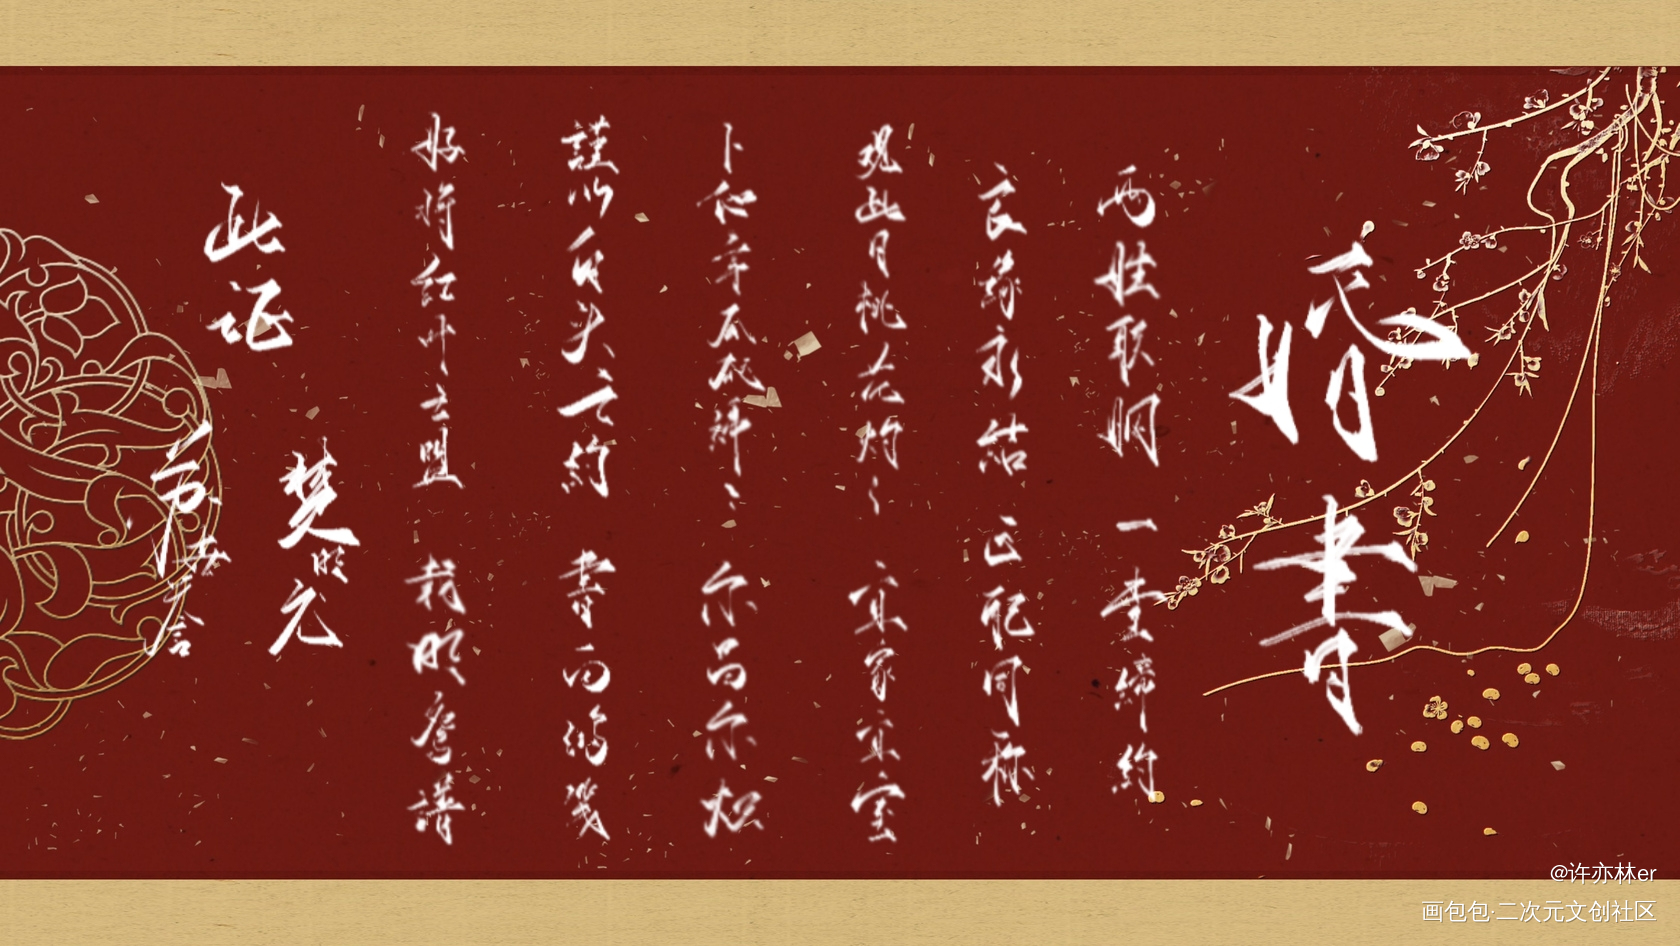 婚書
两姓联姻 一堂缔约
良缘永结 匹配同称
观此日桃花灼灼 宜家宜室
卜他年瓜瓞绵绵 尔昌尔炽
謹以白头之约 書向鸿箋
好将红叶之盟 载明鸳譜
此证
楚昭元
@许亦林er
画包包·二次元文创社区